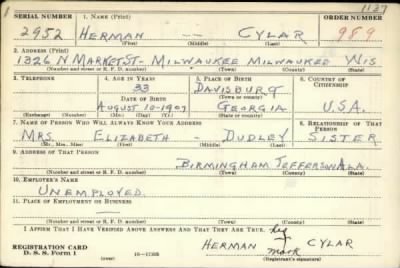 1127
SERIAL NUMBER 1. NAME (Print) ORDER NUMBER
2952 HERMAN -- CYLAR 989
(First) (Middle) (Last)
2. ADDRESS (Print)
1326 N MARKET ST- MILWAUKEE MILWAUKEE WIS
(Number and street or R. F. D. number) (Town) (County) (State)
3. TELEPHONE 4. AGE IN YEARS 5. PLACE OF BIRTH 6. COUNTRY OF CITIZENSHIP
33 DAVISBURG
DATE OF BIRTH (Town or county)
AUGUST 10-1907 GEORGIA U.S.A.
(Exchange) (Number) (Mo.) (Day) (Yr.) (State or country)
7. NAME OF PERSON WHO WILL ALWAYS KNOW YOUR ADDRESS 8. RELATIONSHIP OF THAT PERSON
MRS. ELIZABETH - DUDLEY SISTER
(Mr., Mrs., Miss) (First) (Middle) (Last)
9. ADDRESS OF THAT PERSON
BIRMINGHAM JEFFERSON ALA.
(Number and street or R. F. D. number) (Town) (County) (State)
10. EMPLOYER'S NAME
UNEMPLOYED.
11. PLACE OF EMPLOYMENT OR BUSINESS
(Number and street or R. F. D. number) (Town) (County) (State)
I AFFIRM THAT I HAVE VERIFIED ABOVE ANSWERS AND THAT THEY ARE TRUE.
his
HERMAN CYLAR
mark
REGISTRATION CARD
D. S. S. Form 1 (over) 16-17105 (Registrant's signature)